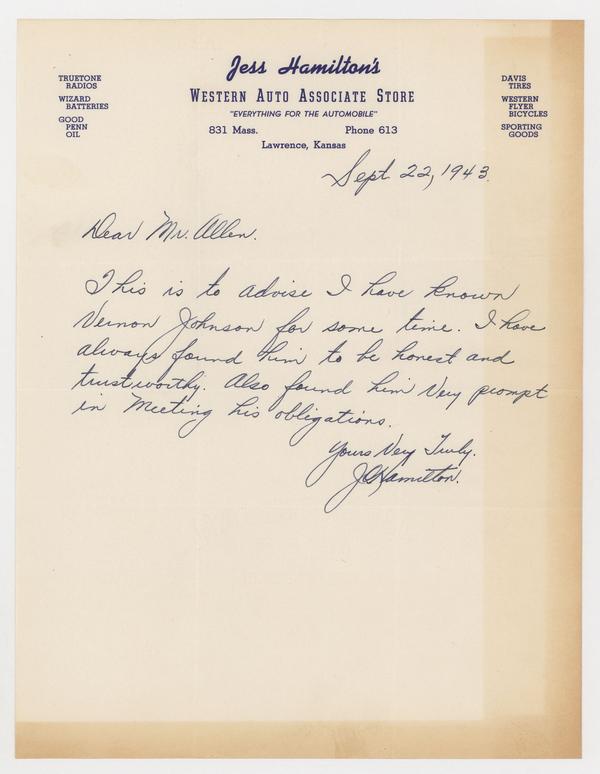 Jess Hamilton's
WESTERN AUTO ASSOCIATE STORE
"EVERYTHING FOR THE AUTOMOBILE"
831 Mass. Phone 613
Lawrence, Kansas
TRUETONE
RADIOS
WIZARD
BATTERIES
GOOD
PENN
OIL
DAVIS
TIRES
WESTERN
FLYER
BICYCLES
SPORTING
GOODS
Sept. 22, 1943.
Dear Mr. Allen.
This is to advise I have known
Vernon Johnson for some time. I have
always found him to be honest and
trustworthy. Also found him Very prompt
in Meeting his obligations.
Yours Very Truly.
JCHamilton.